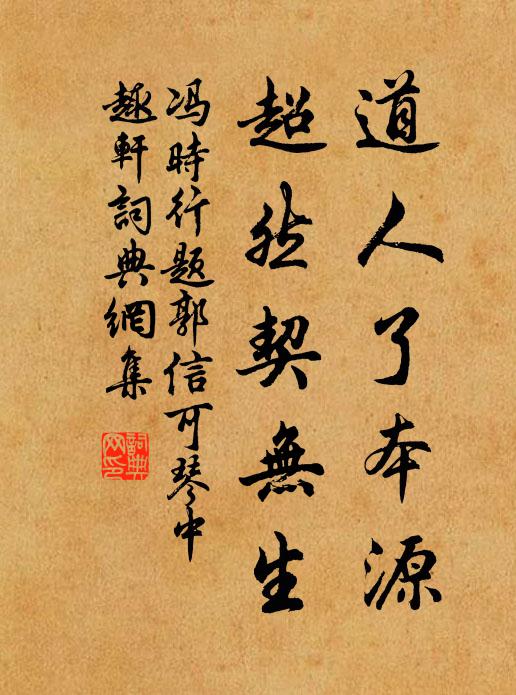 道人了本源
超然契無生
冯時行题郭信可琴中
趣軒詞典網集
詞典网印